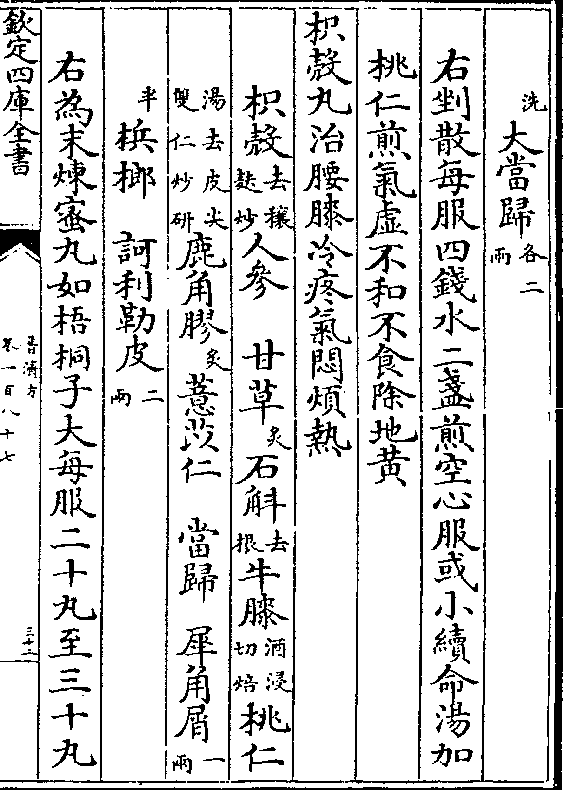 洗大當歸各二兩
右剉散每服四錢水二盞煎空心服或小續命湯加
桃仁煎氣虚不和不食除地黄
枳殼丸治腰膝冷疼氣悶煩熱
枳殼去穰麩炒人參 甘草炙石斛去根牛膝酒浸切焙桃仁
湯去皮尖雙仁炒研鹿角膠炙薏苡仁 當歸 犀角屑一兩
半檳榔 訶利勒皮二兩
右為末煉蜜丸如梧桐子大每服二十丸至三十丸
欽定四庫全書
普濟方
卷一百八十七
三十二